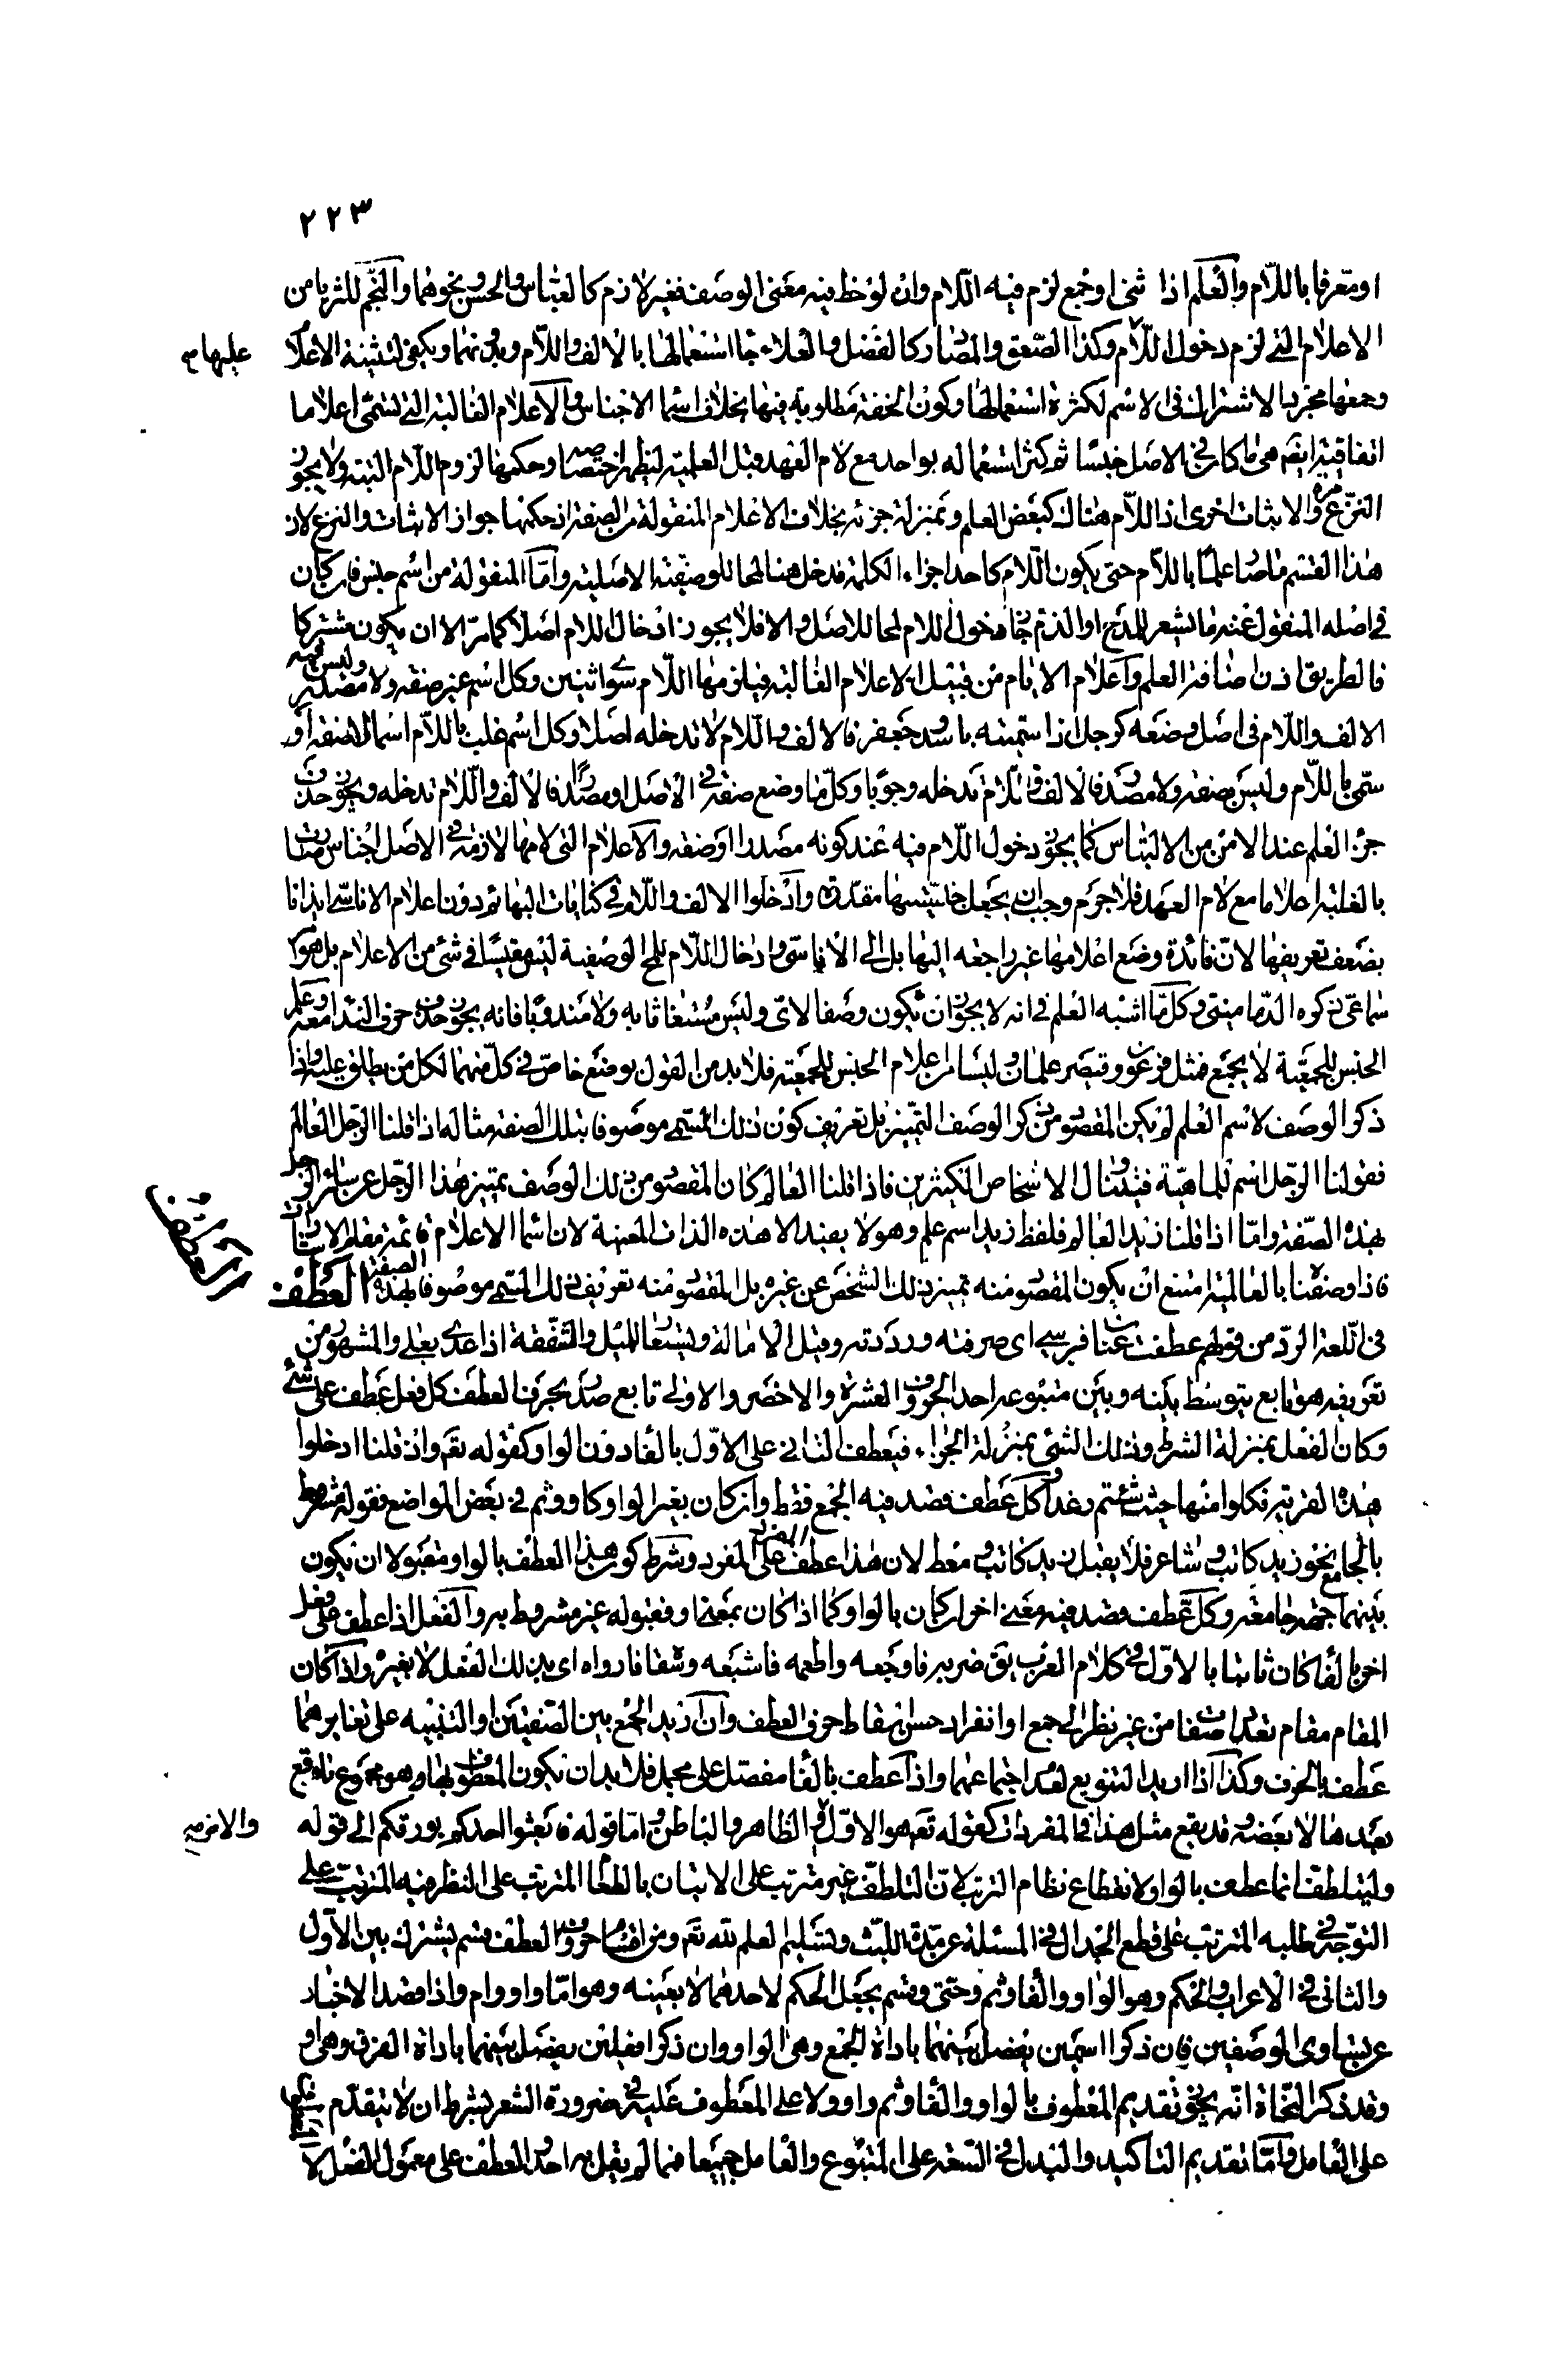 ٢٢٣
او معرفا باللام والعلم اذا ثنى او جمع لزم فيه اللام وان لوحظ فيه معنى الوصف فغير لازم كالعباس والحسن ونحوهما والنجم للثريا من
الاعلام التي لزم دخول اللام وكذا الصعق والمصادر كالفضل والعلاء جاء استعمالها بالالف واللام وبدونهما ويكفي لتثنية الاعلام
عليها
وجمعها مجرد الاشتراك في الاسم لكثرة استعمالها وكون الخفة مطلوبة فيها بخلاف اسماء الاجناس والاعلام الغالبة التي تسمى اعلاما
اتفاقية ايضا هي ما كان في الاصل جنسا ثم كثر استعماله بواحد مع لام العهد قبل العلمية ليظهر اختصاصه وحكمها لزوم اللام البتة ولا يجوز
النزع مرة والاثبات اخرى اذ اللام هناك كبعض العلم وبمنزلة جزئه بخلاف الاعلام المنقولة من الصفة اذ حكمها جواز الاثبات والنزع لان
هذا القسم ما صار علما باللام حتى يكون اللام كاحد اجزاء الكلمة فدخل هنا لمحا للوصفية الاصلية واما المنقولة من اسم جنس فان كان
في اصله المنقول عنه ما يشعر بالمدح او الذم جاز دخول اللام لمحا للاصل والا فلا يجوز ادخال اللام اصلا كما مر الا ان يكون مشتركا
فالطريق اذن اضافة العلم واعلام الايام من قبيل الاعلام الغالبة فيلزمها اللام سوى اثنين وكل اسم غير صفة ولا مصدر وليس فيه
الالف واللام في اصل وضعه كرجل اذا سميته باسد وجعفر فالالف واللام لا تدخله اصلا وكل اسم غلب باللام اسما لا صفة او
سمي باللام وليس بصفة ولا مصدر فالالف واللام تدخله وجوبا وكل ما وضع صفة في الاصل او مصدرا فالالف واللام تدخله ويجوز حذف
جزء العلم عند الامن من الالتباس كما يجوز دخول اللام فيه عند كونه مصدرا او صفة والاعلام التي لامها لازمة في الاصل اجناس صارت
بالغلبة اعلاما مع لام العهد فلا جرم وجب ان يجعل جنسيتها مقدرة وادخلوا الالف واللام في كنايات البهائم دون اعلام الاناسي ايذانا
بضعف تعريفها لان فائدة وضع اعلامها غير راجعة اليها بل الى الاناسي وادخال اللام للمح الوصفية ليس مقيسا في شئ من الاعلام بل هو
سماعي ذكره الدماميني وكل ما اشبه العلم في انه لا يجوز ان يكون وصفا لاي وليس مستغاثا به ولا مندوبا فانه يجوز حذف حرف النداء معه وعلم
الجنس للجمعية لا يجمع فمثل فرعون وقيصر علمان وليسا من اعلام الجنس للجمعية فلا بد من القول بوضع خاص في كل منهما لكل من يطلق عليه واذا
ذكر الوصف لاسم العلم لم يكن المقصود من ذكر الوصف التميز بل تعريف كون ذلك المسمى موصوفا بتلك الصفة مثاله اذا قلنا الرجل العالم
فقولنا الرجل اسم للماهية فيتناول الاشخاص الكثيرين فاذا قلنا العالم كان المقصود من ذلك الوصف تميز هذا الرجل عن سائر الرجل
بهذه الصفة واما اذا قلنا زيد العالم فلفظ زيد اسم علم وهو لا يفيد الا هذه الذات المعينة لان اسماء الاعلام قائمة مقام الاشارات
فاذا وصفناه بالعالمية امتنع ان يكون المقصود منه تميز ذلك الشخص عن غيره بل المقصود منه تعريف ذلك المسمى موصوفا بهذه الصفة العطف
العطف
في اللغة الرد من قولهم عطفت عنان فرسي اى صرفته ورددته وقيل الامالة ويستعار للميل والشفقة اذا عدي بعلى والمشهور من
تعريفه هو تابع يتوسط بينه وبين متبوعه احد الحروف العشرة والاخصر والاولى تابع صدر بحرف العطف كل فعل عطف على شئ
وكان الفعل بمنزلة الشرط وذلك الشئ بمنزلة الجزاء فيعطف الثاني على الاول بالفاء دون الواو كقوله تعم واذ قلنا ادخلوا
هذه القرية فكلوا منها حيث شئتم رغدا وكل عطف قصد فيه الجمع فقط وان كان بغير الواو كاو وثم في بعض المواضع فقوله مشروط
بالجامع نحو زيد كاتب وشاعر فلا يقبل زيد كاتب ومعط لان هذا عطف المفرد على المفرد وشرط كون هذا العطف بالواو مقبولا ان يكون
بينهما جهة جامعة وكل عطف قصد فيه معنى اخر ان كان بالواو كما اذا كان بمعنى او فقبوله غير مشروط به والفعل اذا عطف على فعل
اخر بالفاء كان ثابتا بالاول في كلام العرب يق ضربه فاوجعه واطعمه فاشبعه وسقاه فارواه اى بذلك الفعل لا بغيره واذا كان
المقام مقام تعداد صفات من غير نظر الى جمع او انفراد حسن اسقاط حرف العطف وان اريد الجمع بين الصفتين او التنبيه على تغايرهما
عطف بالحرف وكذا اذا اريد التنويع لعدم اجتماعهما واذا عطف بالفاء مفصل على مجمل فلا بد ان يكون المعطوف بها وهو مجموع ما وقع
بعدها لا بعضه وقد يقع مثل هذا في المفردات كقوله تعم هو الاول والظاهر والباطن واما قوله فابعثوا احدكم بورقكم الى قوله
والاخر
وليتلطف انما عطف بالواو لانقطاع نظام الترتيب لان التلطف غير مترتب على الاتيان بالطعام المترتب على النظر فيه المترتب على
التوجه في طلبه المترتب على قطع الجدال في المسئلة عن مدة اللبث وتسليم العلم لله تعم ومن اقسام حروف العطف قسم يشترك بين الاول
والثاني في الاعراب والحكم وهو الواو والفاء وثم وحتى وقسم يجعل الحكم لاحدهما لا بعينه وهو اما واو وام واذا قصد الاخبار
عن تساوي الوصفين فان ذكرا اسمين يفصل بينهما باداة الجمع وهى الواو وان ذكرا فعلين يفصل بينهما باداة الفرق وهى او
وقد ذكر النحاة انه يجوز تقديم المعطوف بالواو والفاء وثم واو ولا على المعطوف عليه في ضرورة الشعر بشرط ان لا يتقدم
على العامل واما تقديم التاكيد والبدل في السعة على المتبوع والعامل جميعا فمما لم يقل به احد العطف على معمول الفعل لا